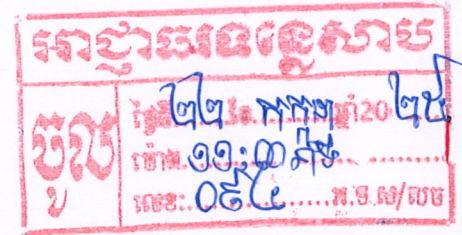 អាជ្ញាធរទន្លេសាប
ចូល
ថ្ងៃទី ២២ ខែ កក្កដា ឆ្នាំ20 ២៥
ម៉ោង ១១:៣
លេខ: ០៩៤ អ.ទ.ស/លច